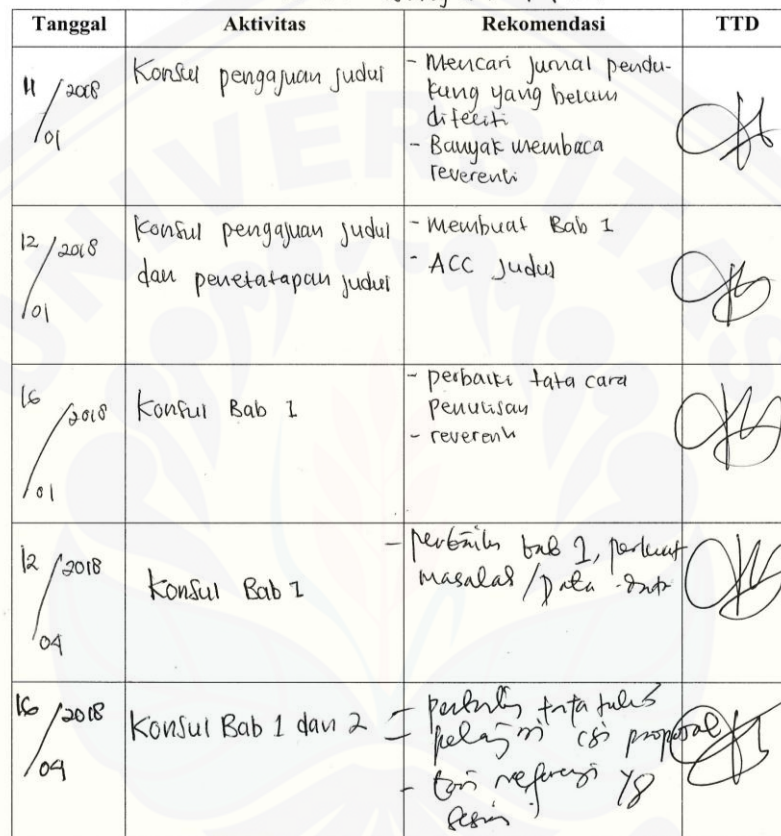 Tanggal Aktivitas Rekomendasi TTD
11/01 2018 Konsul pengajuan judul - Mencari jurnal pendu-
kung yang belum
diteliti
- Banyak membaca
reverensi
12/01 2018 Konsul pengajuan judul - membuat Bab 1
dan penetatapan judul - ACC judul
16/01 2018 Konsul Bab 1 - perbaiki tata cara
penulisan
- reverensi
12/04 2018 Konsul Bab 1 - perbaiki bab 1, perkuat
masalah / Data
16/04 2018 Konsul Bab 1 dan 2 - perbaiki tata tulis
pelajari isi proposal
- cari referensi yg
sesuai
UNIVERSITAS